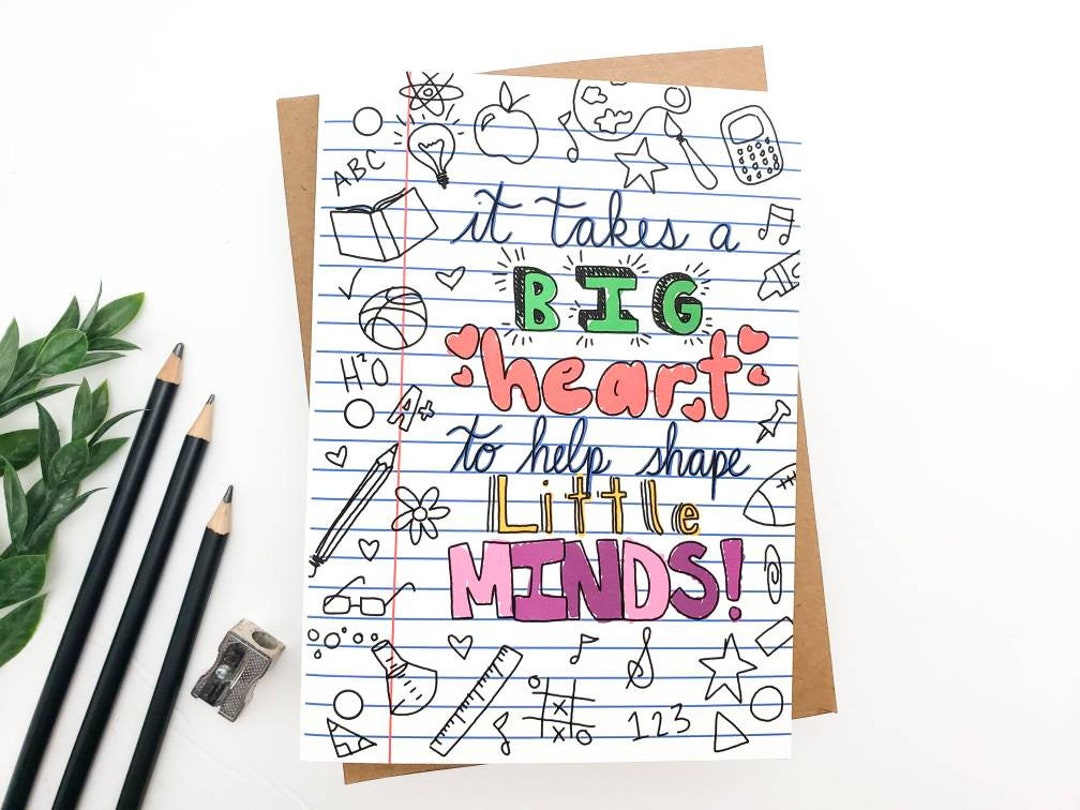 ABC
it takes a
BIG
heart
H²O
A+
to help shape
Little
MINDS!
123